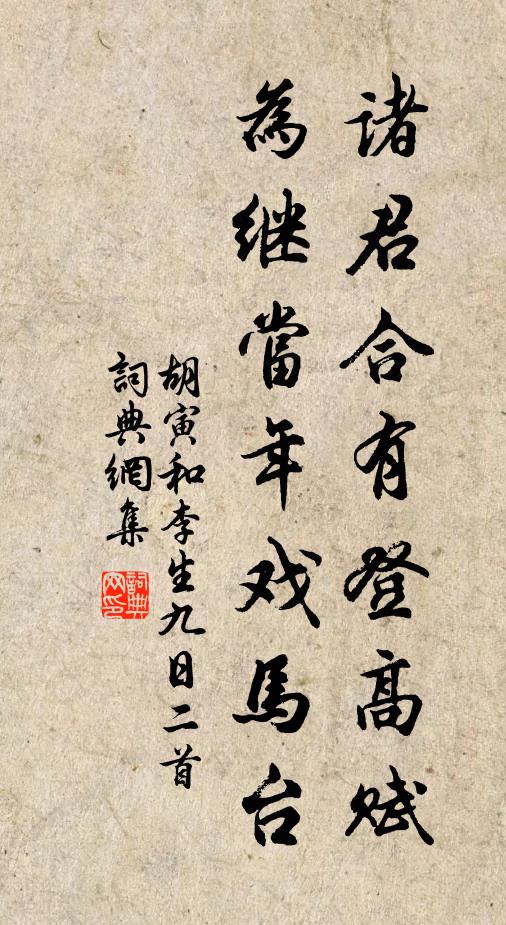 諸君合有登高赋
為继當年戏馬台
胡寅和李生九日二首
詞典網集
詞典网印